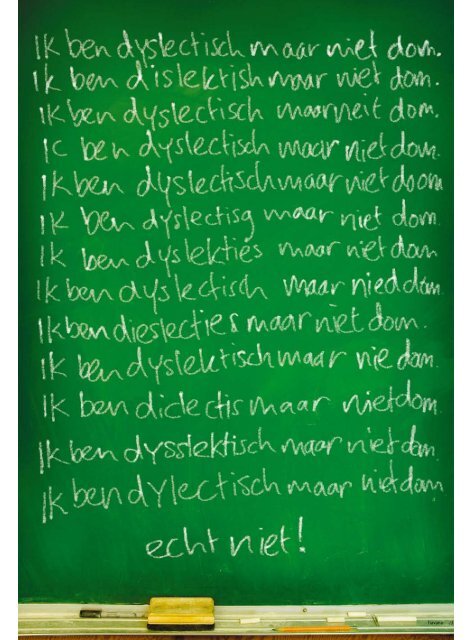 Ik ben dyslectisch maar niet dom.
Ik ben dislektish maar niet dom.
Ik ben dyslectisch maar neit dom.
Ic ben dyslectisch maar niet dom.
Ik ben dyslectisch maar niet doom
Ik ben dyslectisg maar niet dom.
Ik ben dyslekties maar niet dom
Ik ben dyslectisch maar nied dom.
Ik ben dieslecties maar niet dom.
Ik ben dyslektisch maar nie dom.
Ik ben diclectis maar niet dom.
Ik ben dysslektisch maar niet dom.
Ik ben dylectisch maar niet dom
echt niet!